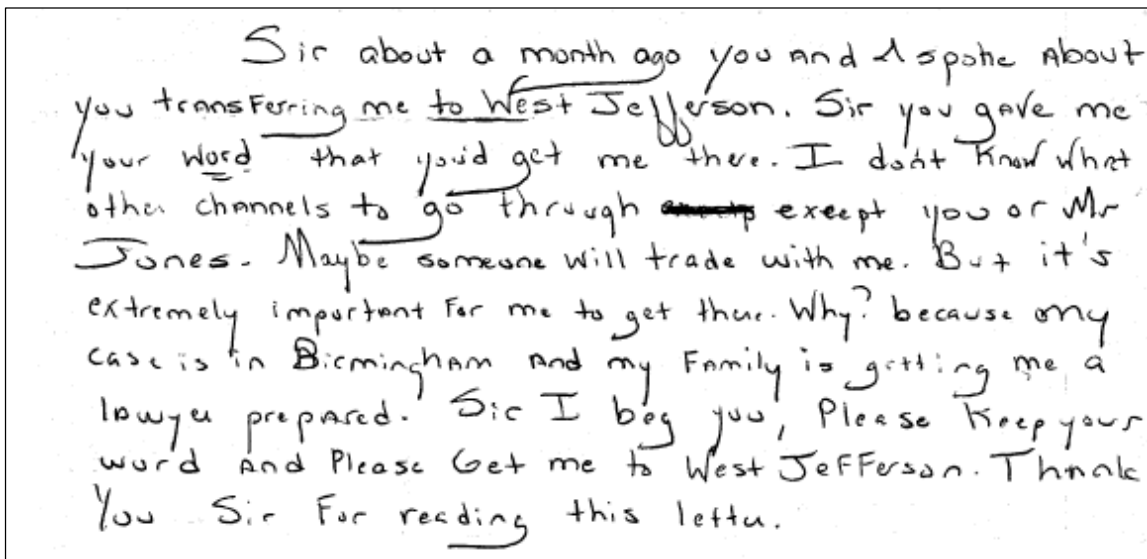 Sir about a month ago you and I spoke About
you transferring me to West Jefferson. Sir you gave me
your word that you'd get me there. I don't know what
other channels to go through except you or Mr
Jones. Maybe someone will trade with me. But it's
extremely important for me to get there. Why? because my
case is in Birmingham and my Family is getting me a
lawyer prepared. Sir I beg you, Please keep your
word and Please Get me to West Jefferson. Thank
You Sir For reading this letter.